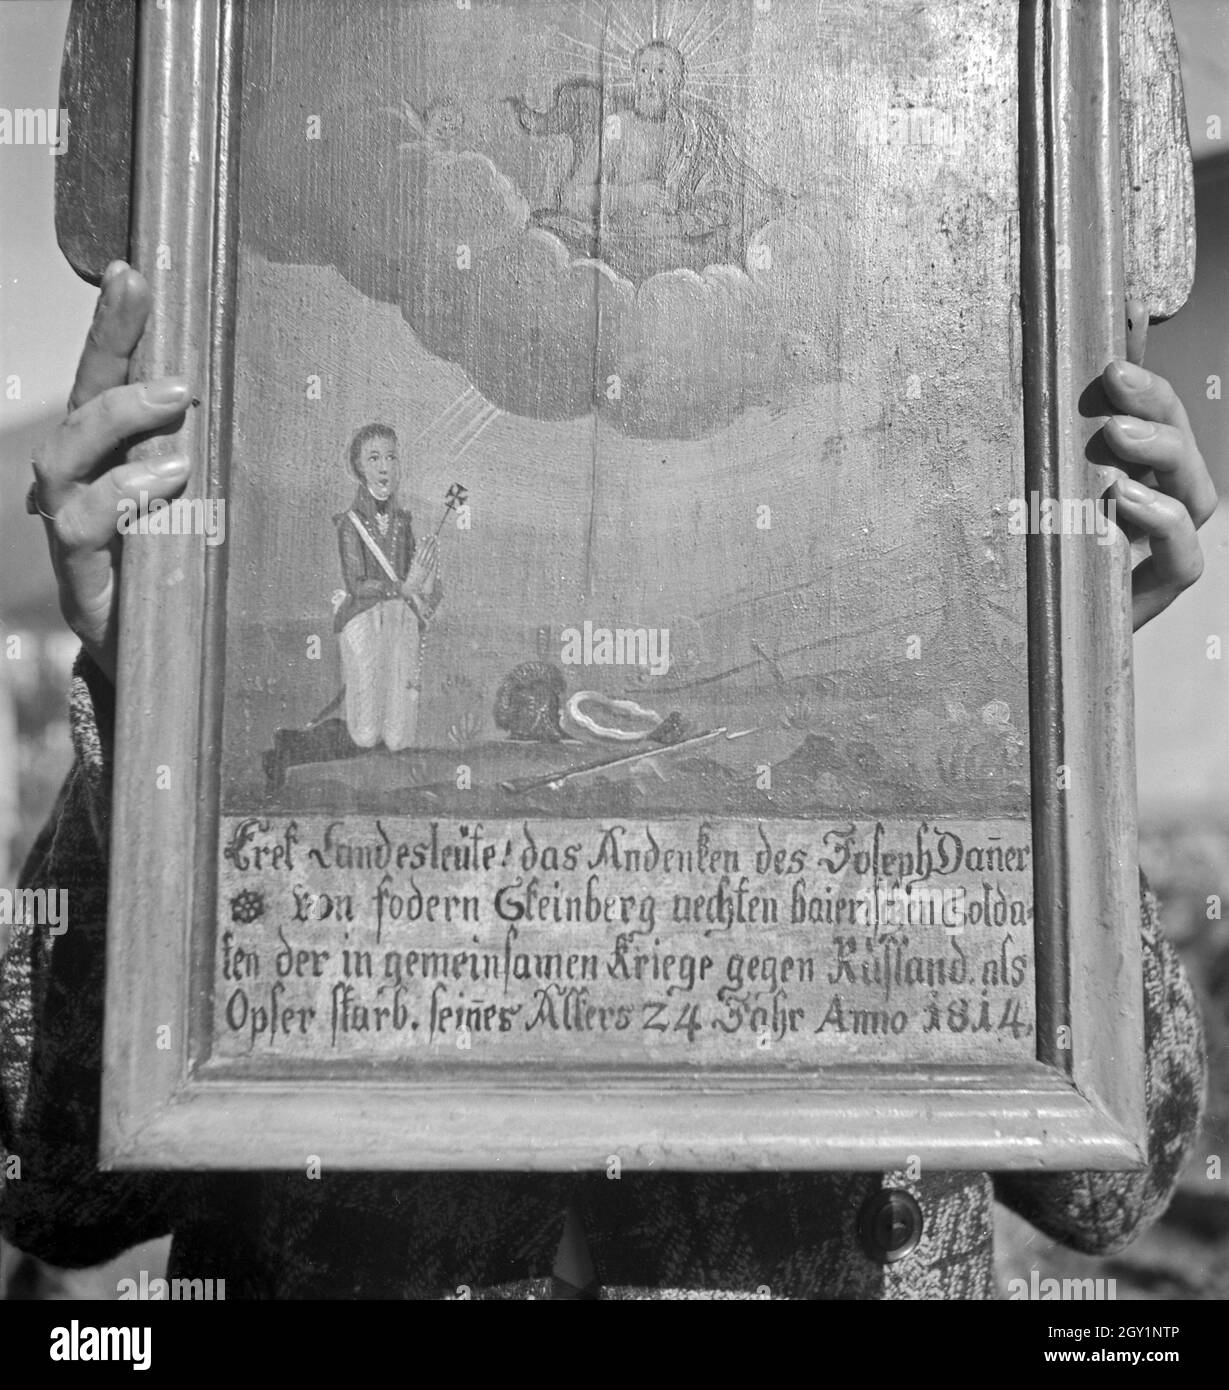 Eret Landesleüte! das Andenken des Joseph Dan̄er
von fodern Steinberg aechten baierischen Solda-
ten der in gemeinsamen Kriege gegen Rüsland. als
Opfer starb. sein̄es Alters 24 Jahr Anno 1814.
alamy
Image ID: 2GY1NTP
www.alamy.com